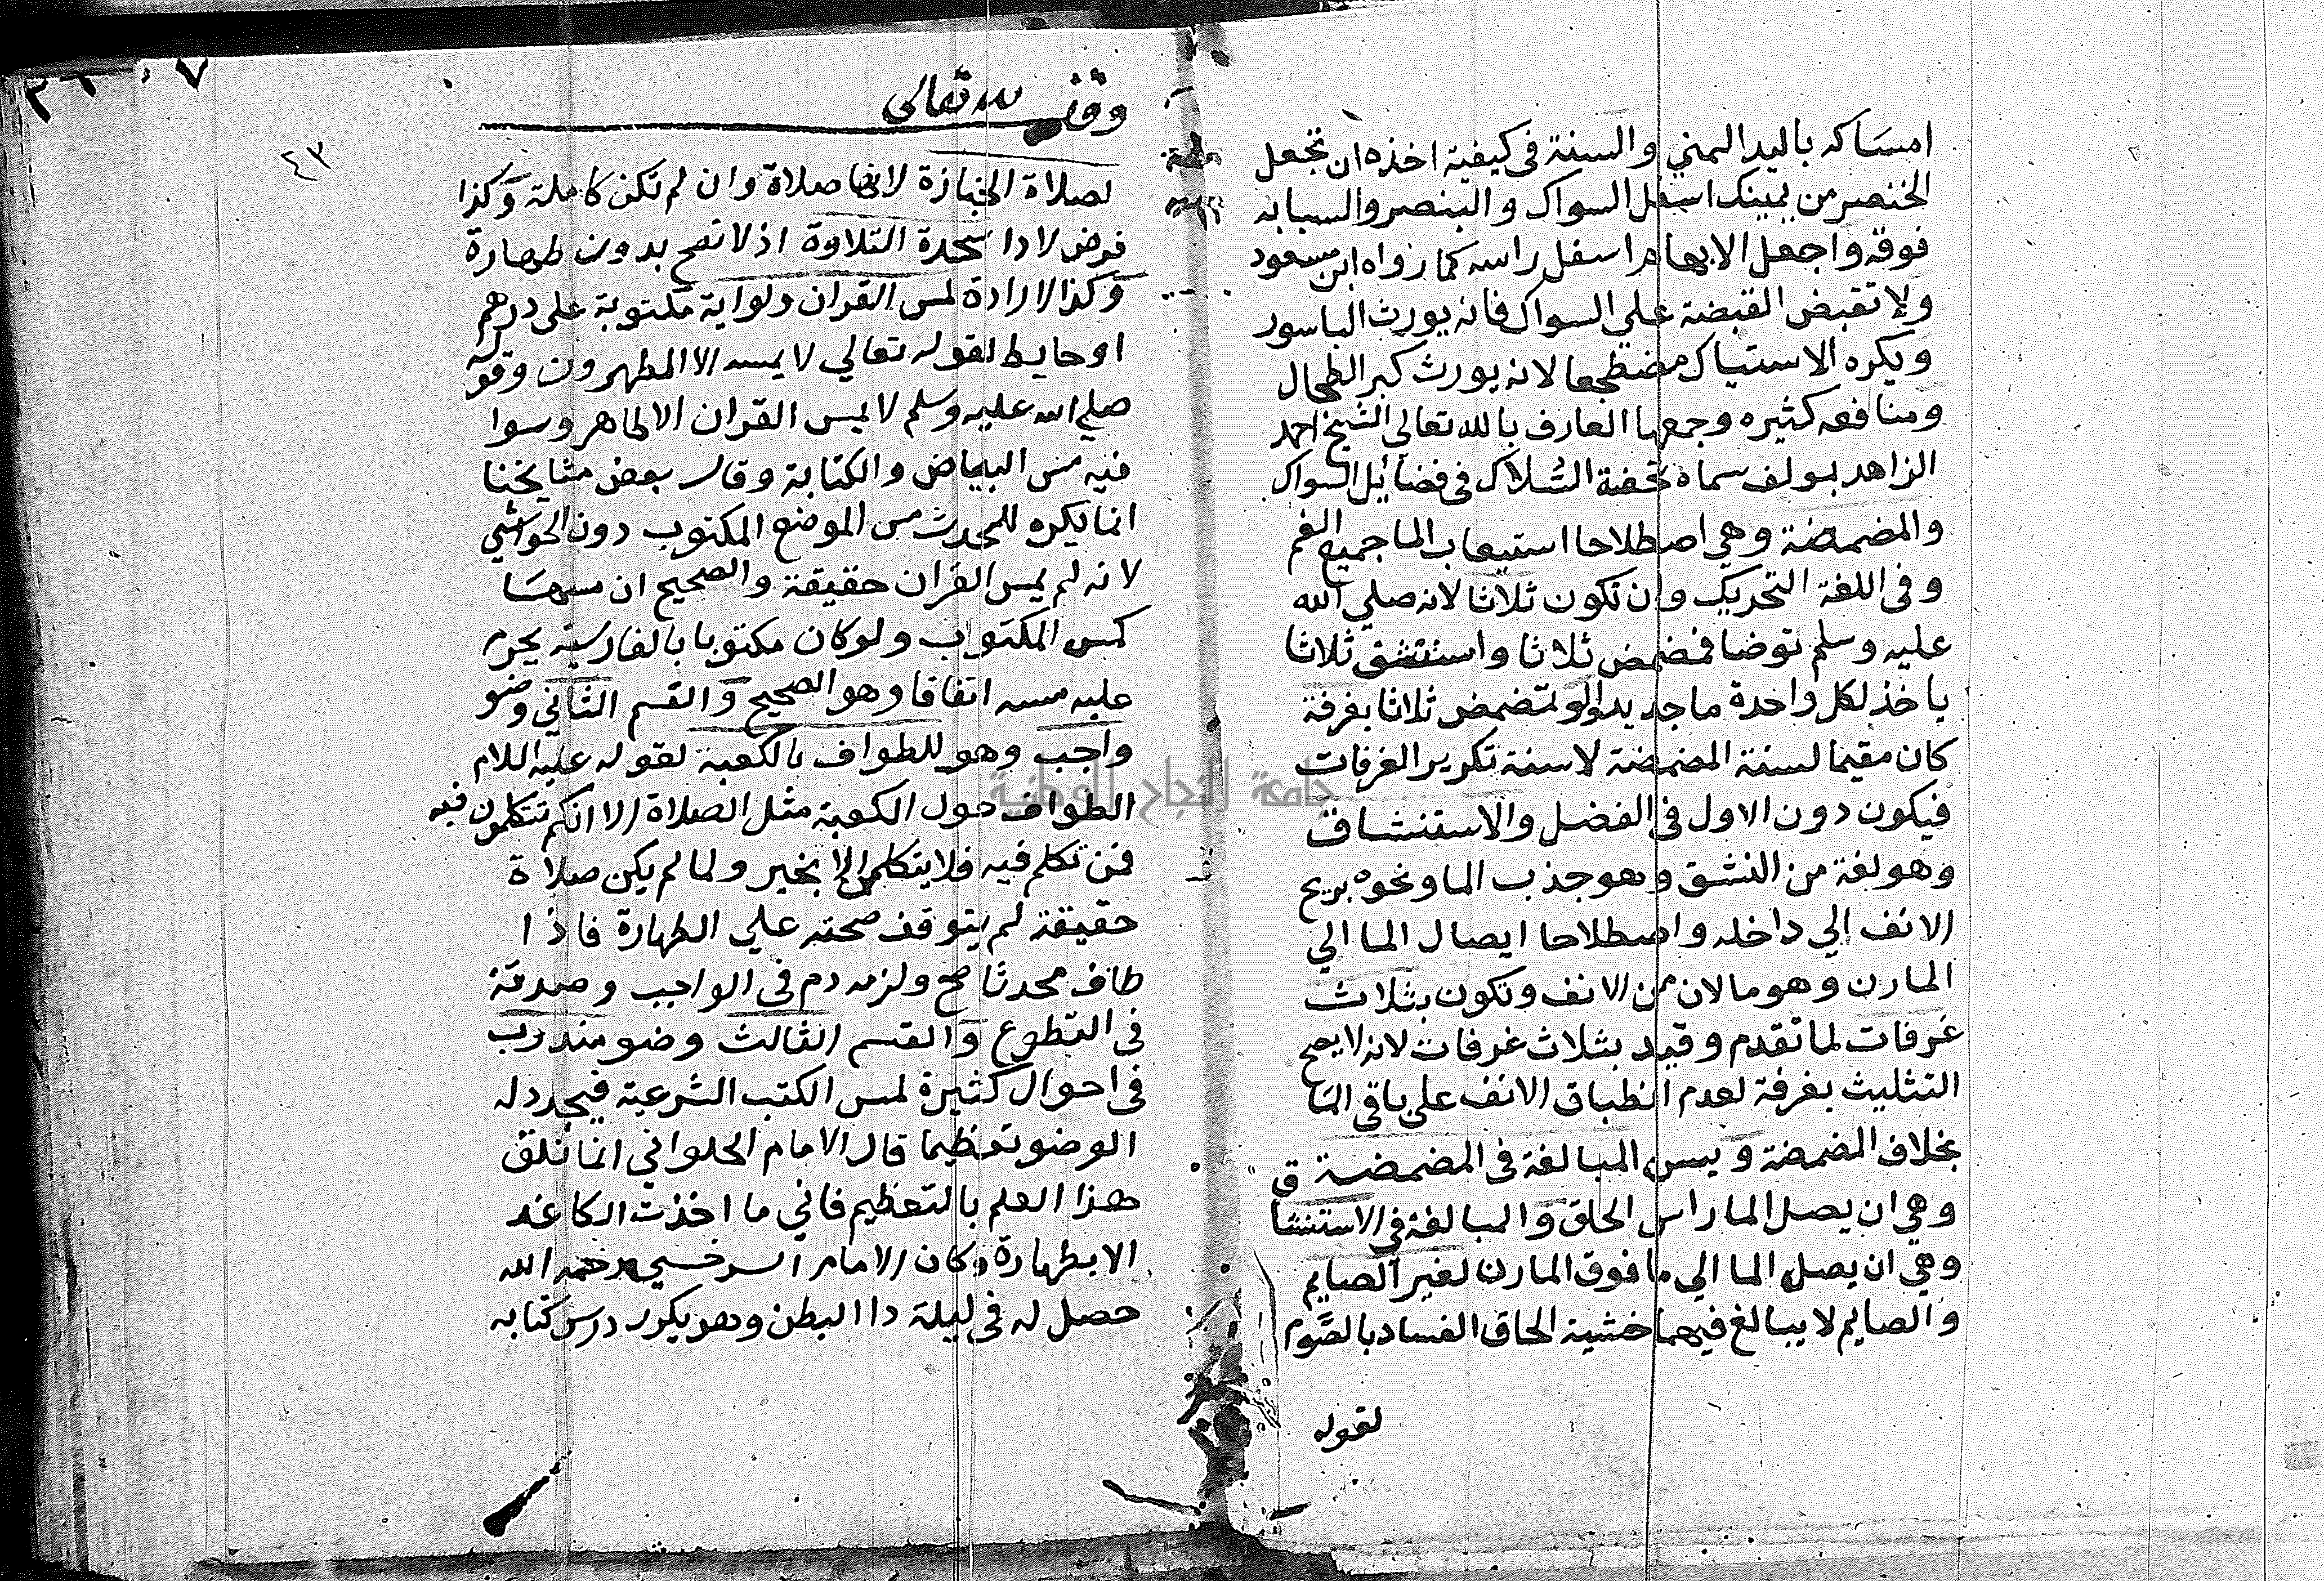 امساكه باليد اليمني والسنة فى كيفية اخذه ان تجعل
الخنصر من يمينك اسفل السواك والبنصر والسبابه
فوقه واجعل الابهام اسفل راسه كما رواه ابن مسعود
ولا تقبض القبضة علي السواك فانه يورث الباسور
ويكره الاستياك مضطجعا لانه يورث كبر الطحال
ومنافعه كثيره وجمعها العارف بالله تعالي الشيخ احمد
الزاهد بمولف سماه تحفة السلاك فى فضايل السواك
والمضمضة وهي اصطلاحا استيعاب الما جميع الفم
وفى اللغة التحريك وان تكون ثلاثا لانه صلي الله
عليه وسلم توضا فمضمض ثلاثا واستنشق ثلاثا
ياخذ لكل واحدة ما جديدا ولو تمضمض ثلاثا بغرفة
كان مقيما لسنة المضمضة لا سنة تكرير الغرفات
فيكون دون الاول فى الفضل والاستنشاق
وهو لغة من النشق وهو جذب الما ونحوه بريح
الانف الي داخله واصطلاحا ايصال الما الي
المارن وهو مالان من الانف وتكون بثلاث
غرفات لما تقدم وقيد بثلاث غرفات لانه لا يصح
التثليث بغرفة لعدم انطباق الانف علي باقى الما
بخلاف المضمضة ويسن المبالغة فى المضمضة
وهي ان يصل الما راس الحلق والمبالغة فى الاستنشاق
وهي ان يصل الما الي ما فوق المارن لغير الصايم
والصايم لا يبالغ فيهما خشية الحاق الفساد بالصوم
لقوله
وقف لله تعالى
٤٣
لصلاة الجنازة لانها صلاة وان لم تكن كاملة وكذا
فرض لادا سجدة التلاوة اذ لا تصح بدون طهارة
وكذا لارادة لمس القران ولو اية مكتوبة على درهم
او حايط لقوله تعالي لا يمسه الا المطهرون وقوله
صلي الله عليه وسلم لا يمس القران الا طاهر وسوا
فيه مس البياض والكتابة وقال بعض مشايخنا
انما يكره للمحدث مس الموضع المكتوب دون الحواشي
لانه لم يمس القران حقيقة والصحيح ان مسها
كمس المكتوب ولو كان مكتوبا بالفارسية يحرم
عليه مسه اتفاقا وهو الصحيح والقسم الثاني وضو
واجب وهو للطواف بالكعبة لقوله عليه السلام
الطواف حول الكعبة مثل الصلاة الا انكم تتكلمون فيه
فمن تكلم فيه فلا يتكلمن الا بخير ولما لم يكن صلاة
حقيقة لم يتوقف صحته علي الطهارة فاذا
طاف محدثا صح ولزمه دم فى الواجب وصدقة
فى التطوع والقسم الثالث وضو مندوب
فى احوال كثيرة لمس الكتب الشرعية فيجدد له
الوضو تعظيما قال الامام الحلواني انما نلت
هذا العلم بالتعظيم فاني ما اخذت الكاغد
الا بطهارة وكان الامام السرخسي رحمه الله
حصل له فى ليلة دا البطن وهو يكرر درس كتابه
جامعة النجاح الوطنية